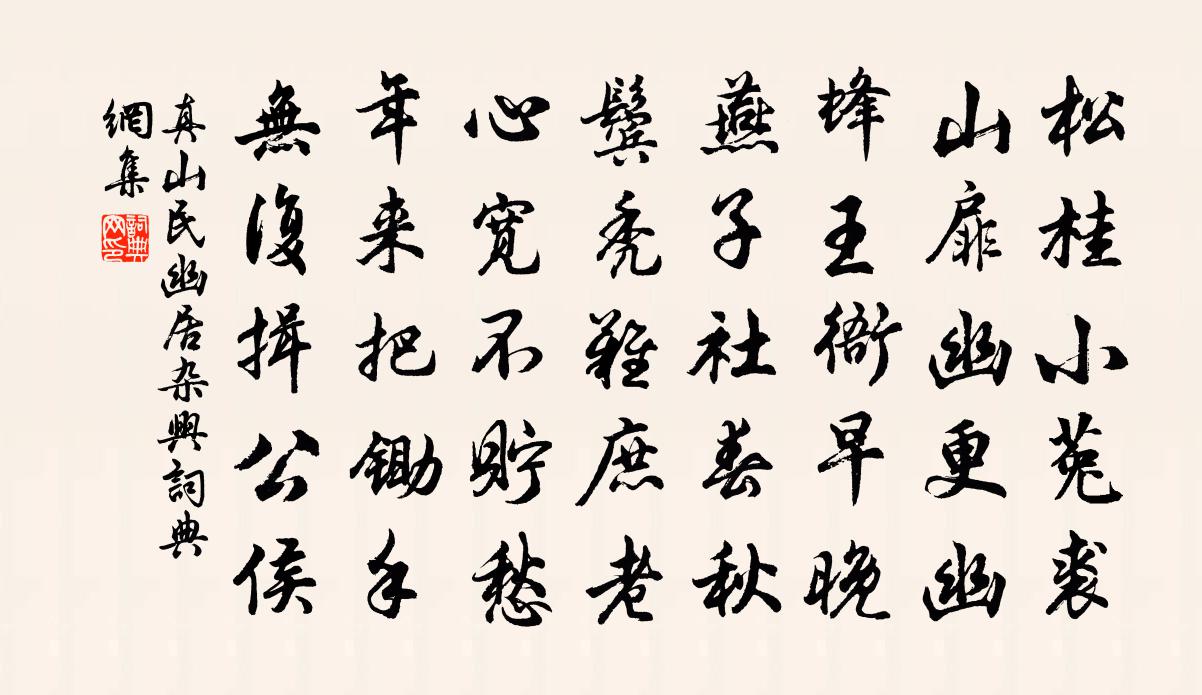 松桂小菟裘
山扉幽更幽
蜂王衙早晚
燕子社春秋
鬢秃難庶老
心寬不貯愁
年来把鋤手
無復揖公侯
真山民幽居杂興詞典
網集
詞典
网印